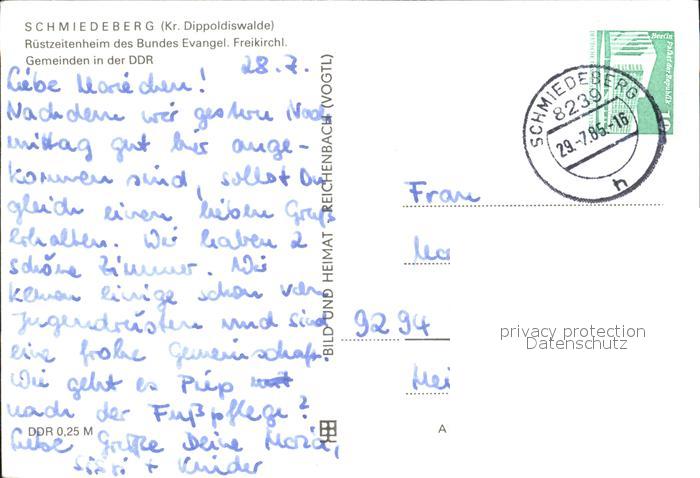 SCHMIEDEBERG (Kr. Dippoldiswalde)
Rüstzeitenheim des Bundes Evangel. Freikirchl.
Gemeinden in der DDR
28.7.
Liebe Mariechen!
Nachdem wir gestern Nach
mittag gut hier ange-
kommen sind, sollst Du
gleich einen lieben Gruß
erhalten. Wir haben 2
schöne Zimmer. Wir
kennen einige schon von
Jugendrüsten und sind
eine frohe Gemeinschaft.
Wie geht es Piep
nach der Fußpflege?
Liebe Grüße Deine
+ Kinder
DDR 0,25 M
BILD UND HEIMAT REICHENBACH (VOGTL)
Berlin
Palast der Republik
10
SCHMIEDEBERG
8239
29.-7.85.-16
h
Frau
9294
privacy protection
Datenschutz
A